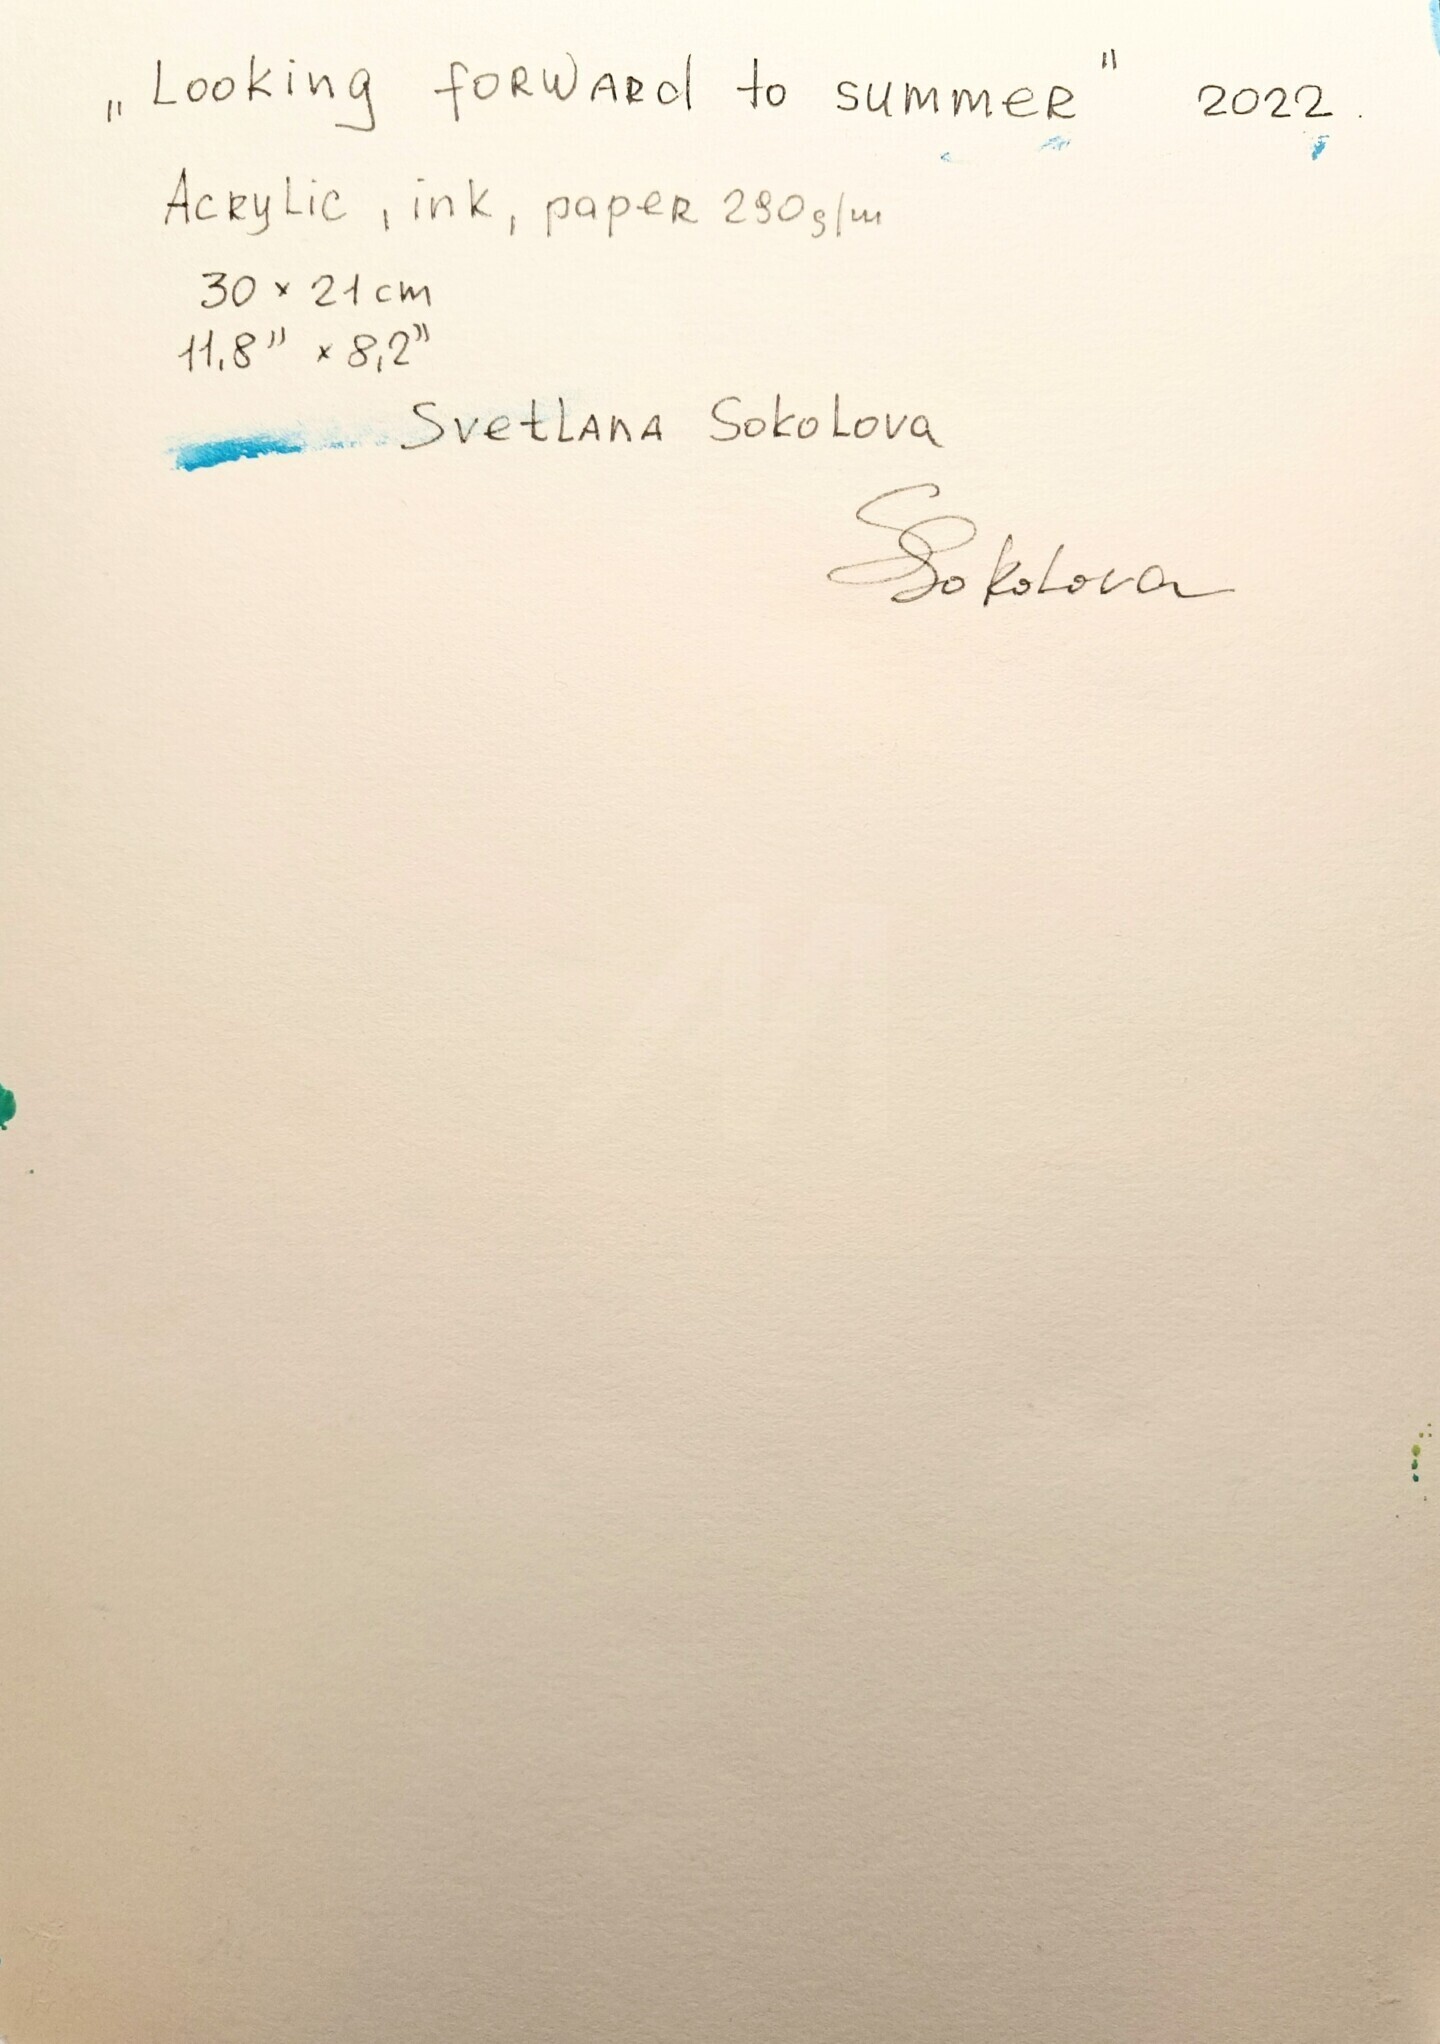 „Looking forward to summer" 2022.
Acrylic, ink, paper 290g/m
30 × 21 cm
11,8" × 8,2"
Svetlana Sokolova
SSokolova